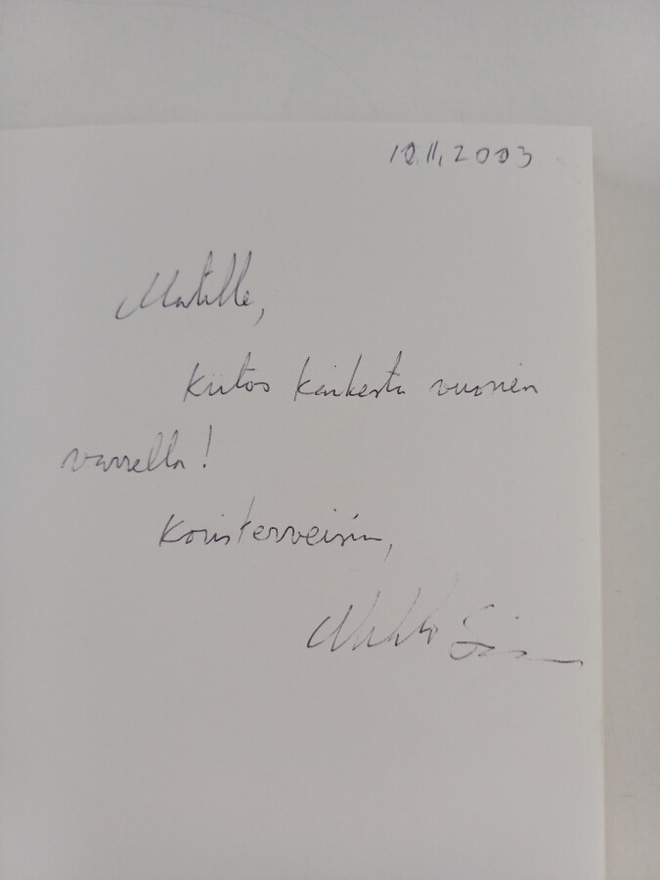 12.11.2003
Matille,
Kiitos kaikesta vuosien
varrella!
Koristerveisin,